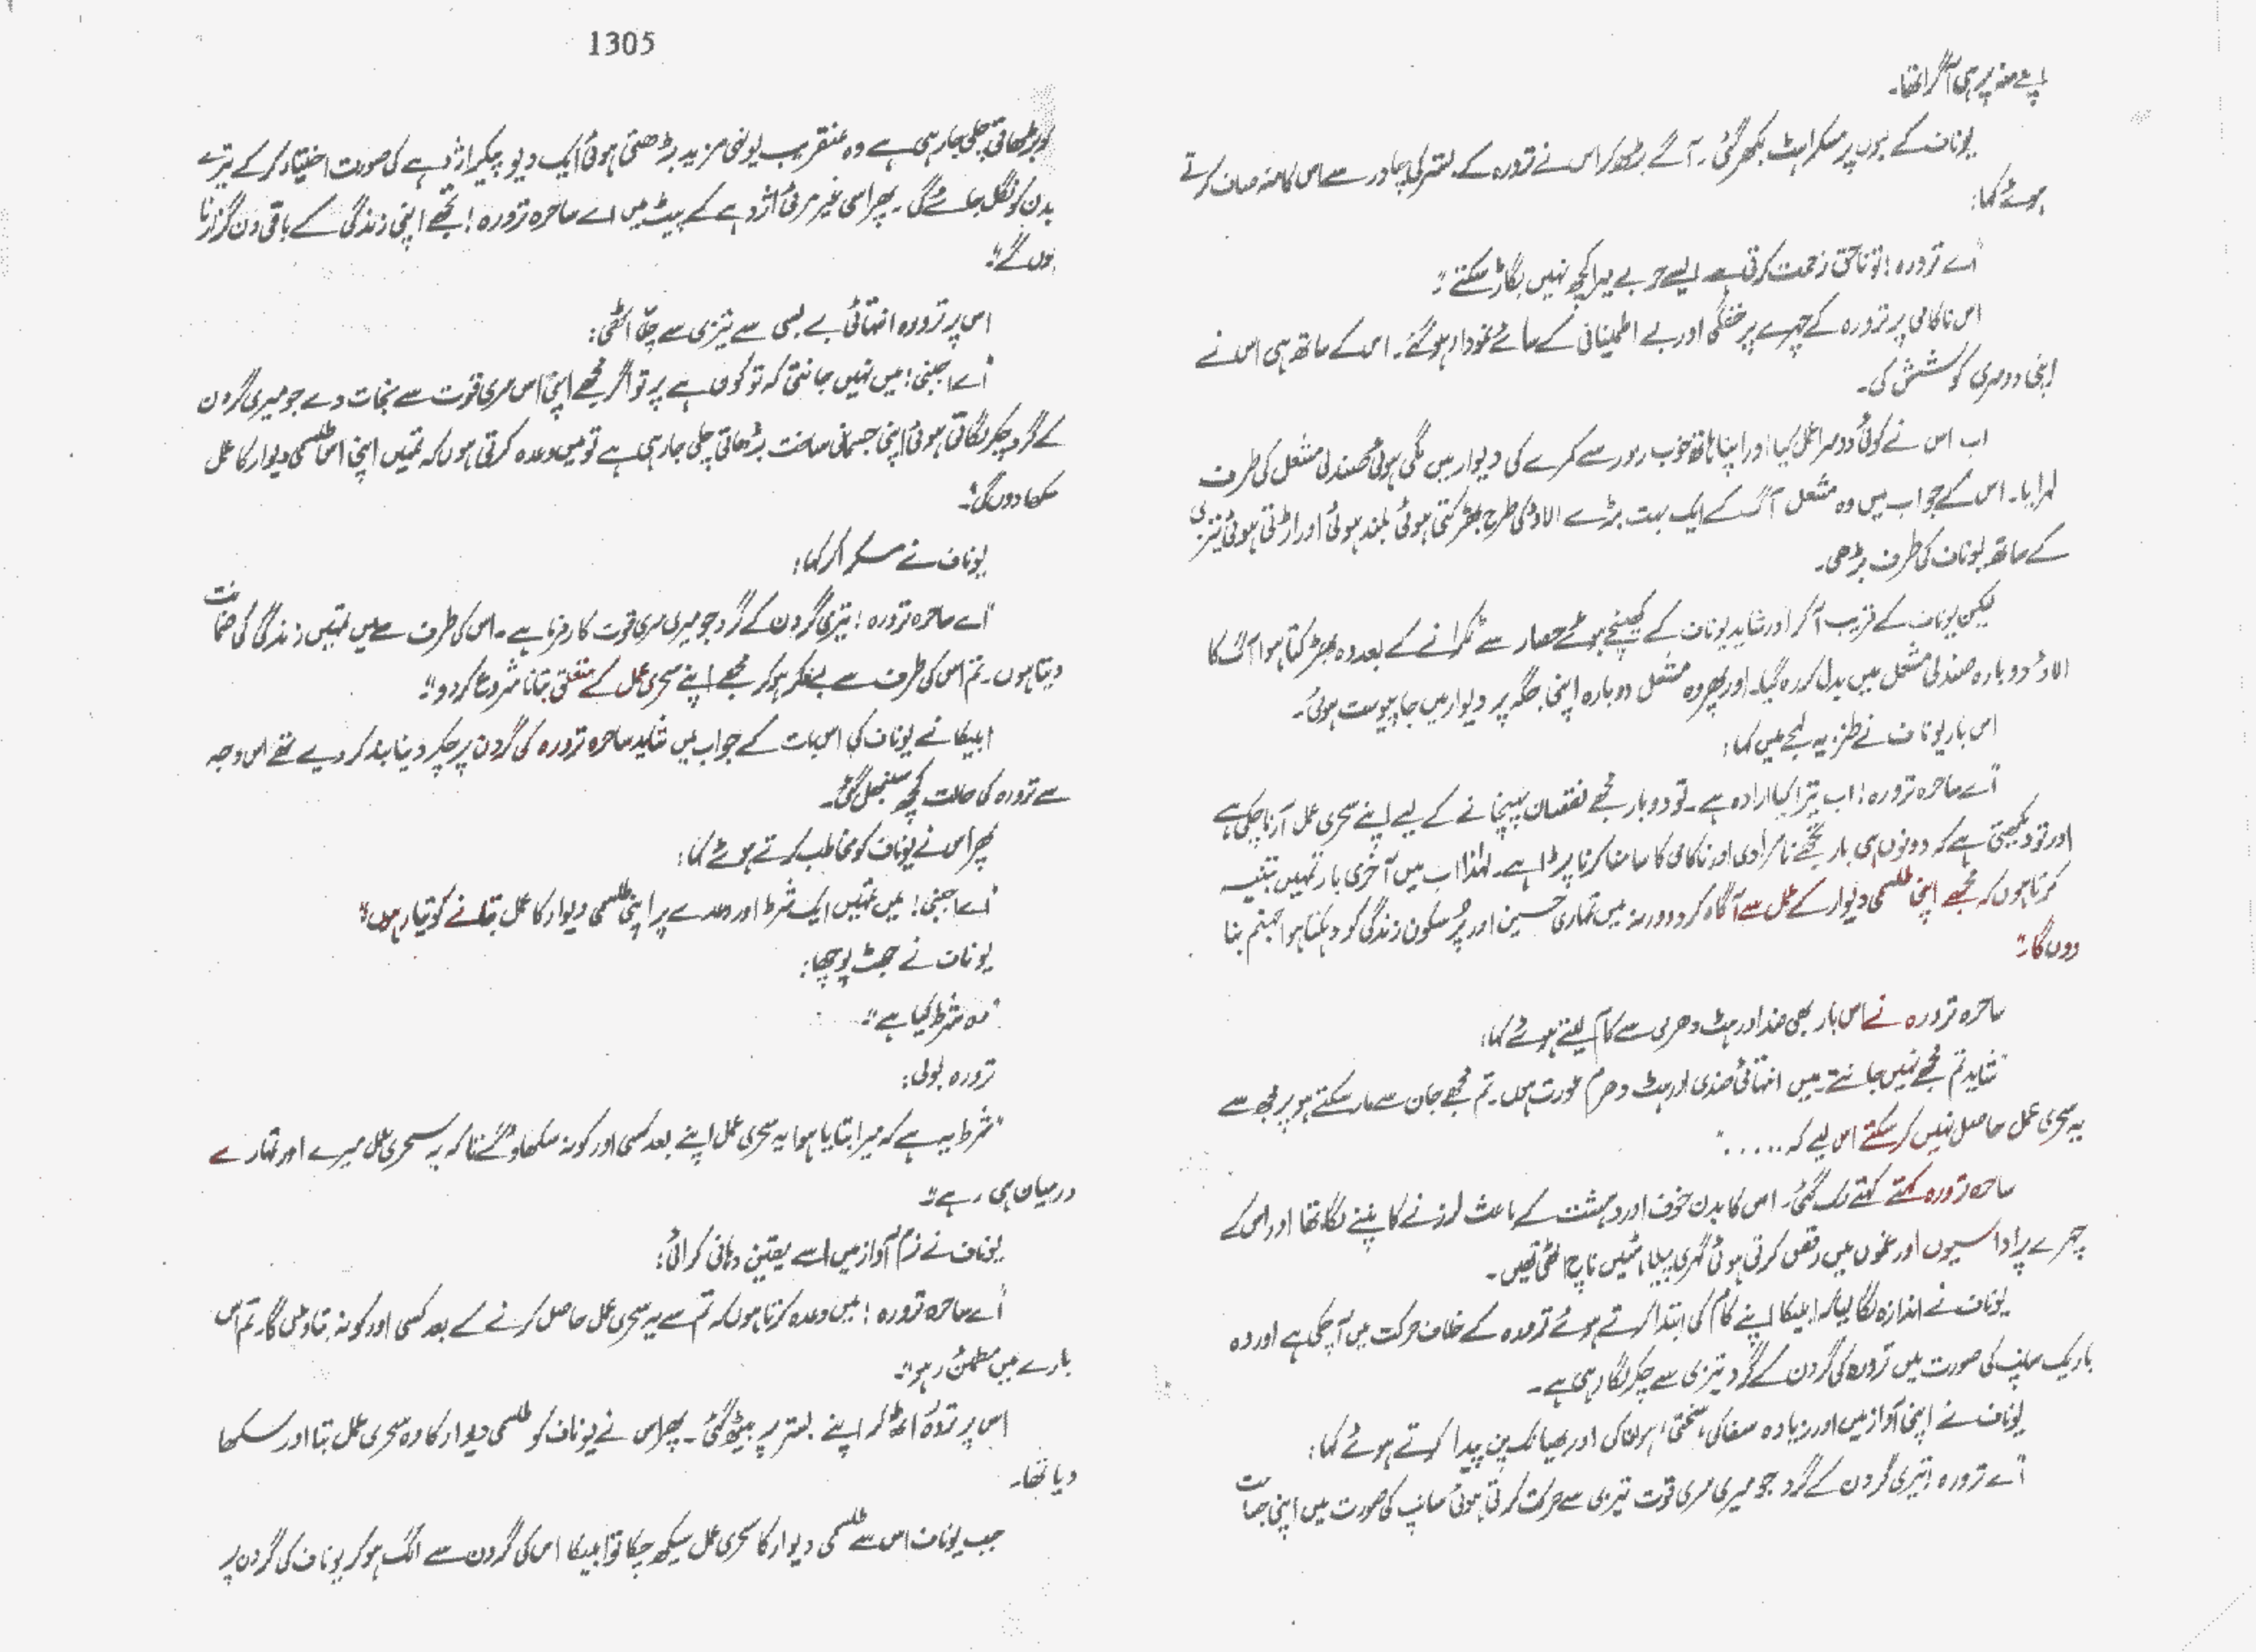 اپنے منہ پر ہی آ گرا تھا۔
یوناف کے لبوں پر مسکراہٹ بکھر گئی۔ آگے بڑھ کر اس نے تروره کے بستر کی چادر سے اس کا منہ صاف کرتے
ہوئے کہا:
"اے تروره! تو ناحق زحمت کرتی ہے ایسے حربے میرا کچھ نہیں بگاڑ سکتے"۔
اس ناکامی پر تروره کے چہرے پر خفگی اور بے اطمینانی کے سائے نمودار ہو گئے۔ اس کے ساتھ ہی اس نے
اپنی دوسری کوشش کی۔
اب اس نے کوئی دوسرا عمل کیا اور اپنا ہاتھ خوب زور سے کمرے کی دیوار میں لگی ہوئی صندلی مشعل کی طرف
لہرایا۔ اس کے جواب میں وہ مشعل آگ کے ایک بہت بڑے الاؤ کی طرح بھڑکتی ہوئی بلند ہوئی اور اڑتی ہوئی تیزی
کے ساتھ یوناف کی طرف بڑھی۔
لیکن یوناف کے قریب آ کر اور شاید یوناف کے کھینچے ہوئے حصار سے ٹکرانے کے بعد وہ بھڑکتا ہوا آگ کا
الاؤ دوبارہ صندلی مشعل میں بدل کر رہ گیا۔ اور پھر وہ مشعل دوبارہ اپنی جگہ پر دیوار میں جا پیوست ہوئی۔
اس بار یوناف نے طنزیہ لہجے میں کہا:
"اے ساحرہ تروره! اب تیرا کیا ارادہ ہے۔ تو دو بار مجھے نقصان پہنچانے کے لیے اپنے سحری عمل آزما چکی ہے
اور تو دیکھتی ہے کہ دونوں ہی بار تجھے نامرادی اور ناکامی کا سامنا کرنا پڑا ہے۔ لہٰذا اب میں آخری بار تمہیں تنبیہہ
کرتا ہوں کہ مجھے اپنی طلسمی دیوار کے عمل سے آگاہ کر دو ورنہ میں تمہاری حسین اور پُرسکون زندگی کو دہکتا ہوا جہنم بنا
دوں گا"۔
ساحرہ تروره نے اس بار بھی ضد اور ہٹ دھرمی سے کام لیتے ہوئے کہا:
"شاید تم مجھے نہیں جانتے۔ میں انتہائی ضدی اور ہٹ دھرم عورت ہوں۔ تم مجھے جان سے مار سکتے ہو پر مجھ سے
یہ سحری عمل حاصل نہیں کر سکتے اس لیے کہ ....."
ساحرہ تروره کہتے کہتے رک گئی۔ اس کا بدن خوف اور دہشت کے باعث لرزنے کانپنے لگا تھا اور اس کے
چہرے پر اداسیوں اور غموں میں رقص کرتی ہوئی گہری پیلاہٹیں ناچ اٹھی تھیں۔
یوناف نے اندازہ لگا لیا کہ ابلیکا اپنے کام کی ابتدا کرتے ہوئے تروره کے خلاف حرکت میں آ چکی ہے اور وہ
باریک سانپ کی صورت میں تروره کی گردن کے گرد تیزی سے چکر لگا رہی ہے۔
یوناف نے اپنی آواز میں اور زیادہ سفاکی، سختی، ہولناکی اور بھیانک پن پیدا کرتے ہوئے کہا:
"اے تروره! تیری گردن کے گرد جو میری سری قوت تیزی سے حرکت کرتی ہوئی سانپ کی صورت میں اپنی جسامت
1305
کو بڑھاتی چلی جا رہی ہے وہ عنقریب یونہی مزید بڑھتی ہوئی ایک دیو پیکر اژدہے کی صورت اختیار کر کے تیرے
بدن کو نگل جائے گی۔ پھر اسی غیر مرئی اژدہے کے پیٹ میں اے ساحرہ تروره! تجھے اپنی زندگی کے باقی دن گزارنا
ہوں گے"۔
اس پر تروره انتہائی بے بسی سے تیزی سے چلّا اٹھی:
"اے اجنبی! میں نہیں جانتی کہ تو کون ہے پر تو اگر مجھے اپنی اس سری قوت سے نجات دے جو میری گردن
کے گرد چکر لگاتی ہوئی اپنی جسمانی ساخت بڑھاتی چلی جا رہی ہے تو میں وعدہ کرتی ہوں کہ تمہیں اپنی اس طلسمی دیوار کا عمل
سکھا دوں گی"۔
یوناف نے مسکرا کر کہا:
"اے ساحرہ تروره! تیری گردن کے گرد جو میری سری قوت کارفرما ہے۔ اس کی طرف سے میں تمہیں زندگی کی ضمانت
دیتا ہوں۔ تم اس کی طرف سے بے فکر ہو کر مجھے اپنے سحری عمل کے متعلق بتانا شروع کر دو"۔
ابلیکا نے یوناف کی اس بات کے جواب میں شاید ساحرہ تروره کی گردن پر چکر دینا بند کر دیے تھے اس وجہ
سے تروره کی حالت کچھ سنبھل گئی۔
پھر اس نے یوناف کو مخاطب کرتے ہوئے کہا:
"اے اجنبی! میں تمہیں ایک شرط اور وعدے پر اپنی طلسمی دیوار کا عمل بتانے کو تیار ہوں"۔
یوناف نے جھٹ پوچھا:
"وہ شرط کیا ہے"۔
تروره بولی:
"شرط یہ ہے کہ میرا بتایا ہوا یہ سحری عمل اپنے بعد کسی اور کو نہ سکھاؤ گے تاکہ یہ سحری عمل میرے اور تمہارے
درمیان ہی رہے"۔
یوناف نے نرم آواز میں اسے یقین دہانی کرائی:
"اے ساحرہ تروره! میں وعدہ کرتا ہوں کہ تم سے یہ سحری عمل حاصل کرنے کے بعد کسی اور کو نہ بتاؤں گا۔ تم اس
بارے میں مطمئن رہو"۔
اس پر تروره اٹھ کر اپنے بستر پر بیٹھ گئی۔ پھر اس نے یوناف کو طلسمی دیوار کا وہ سحری عمل بتا اور سکھا
دیا تھا۔
جب یوناف اس سے طلسمی دیوار کا سحری عمل سیکھ چکا تو ابلیکا اس کی گردن سے الگ ہو کر یوناف کی گردن پر